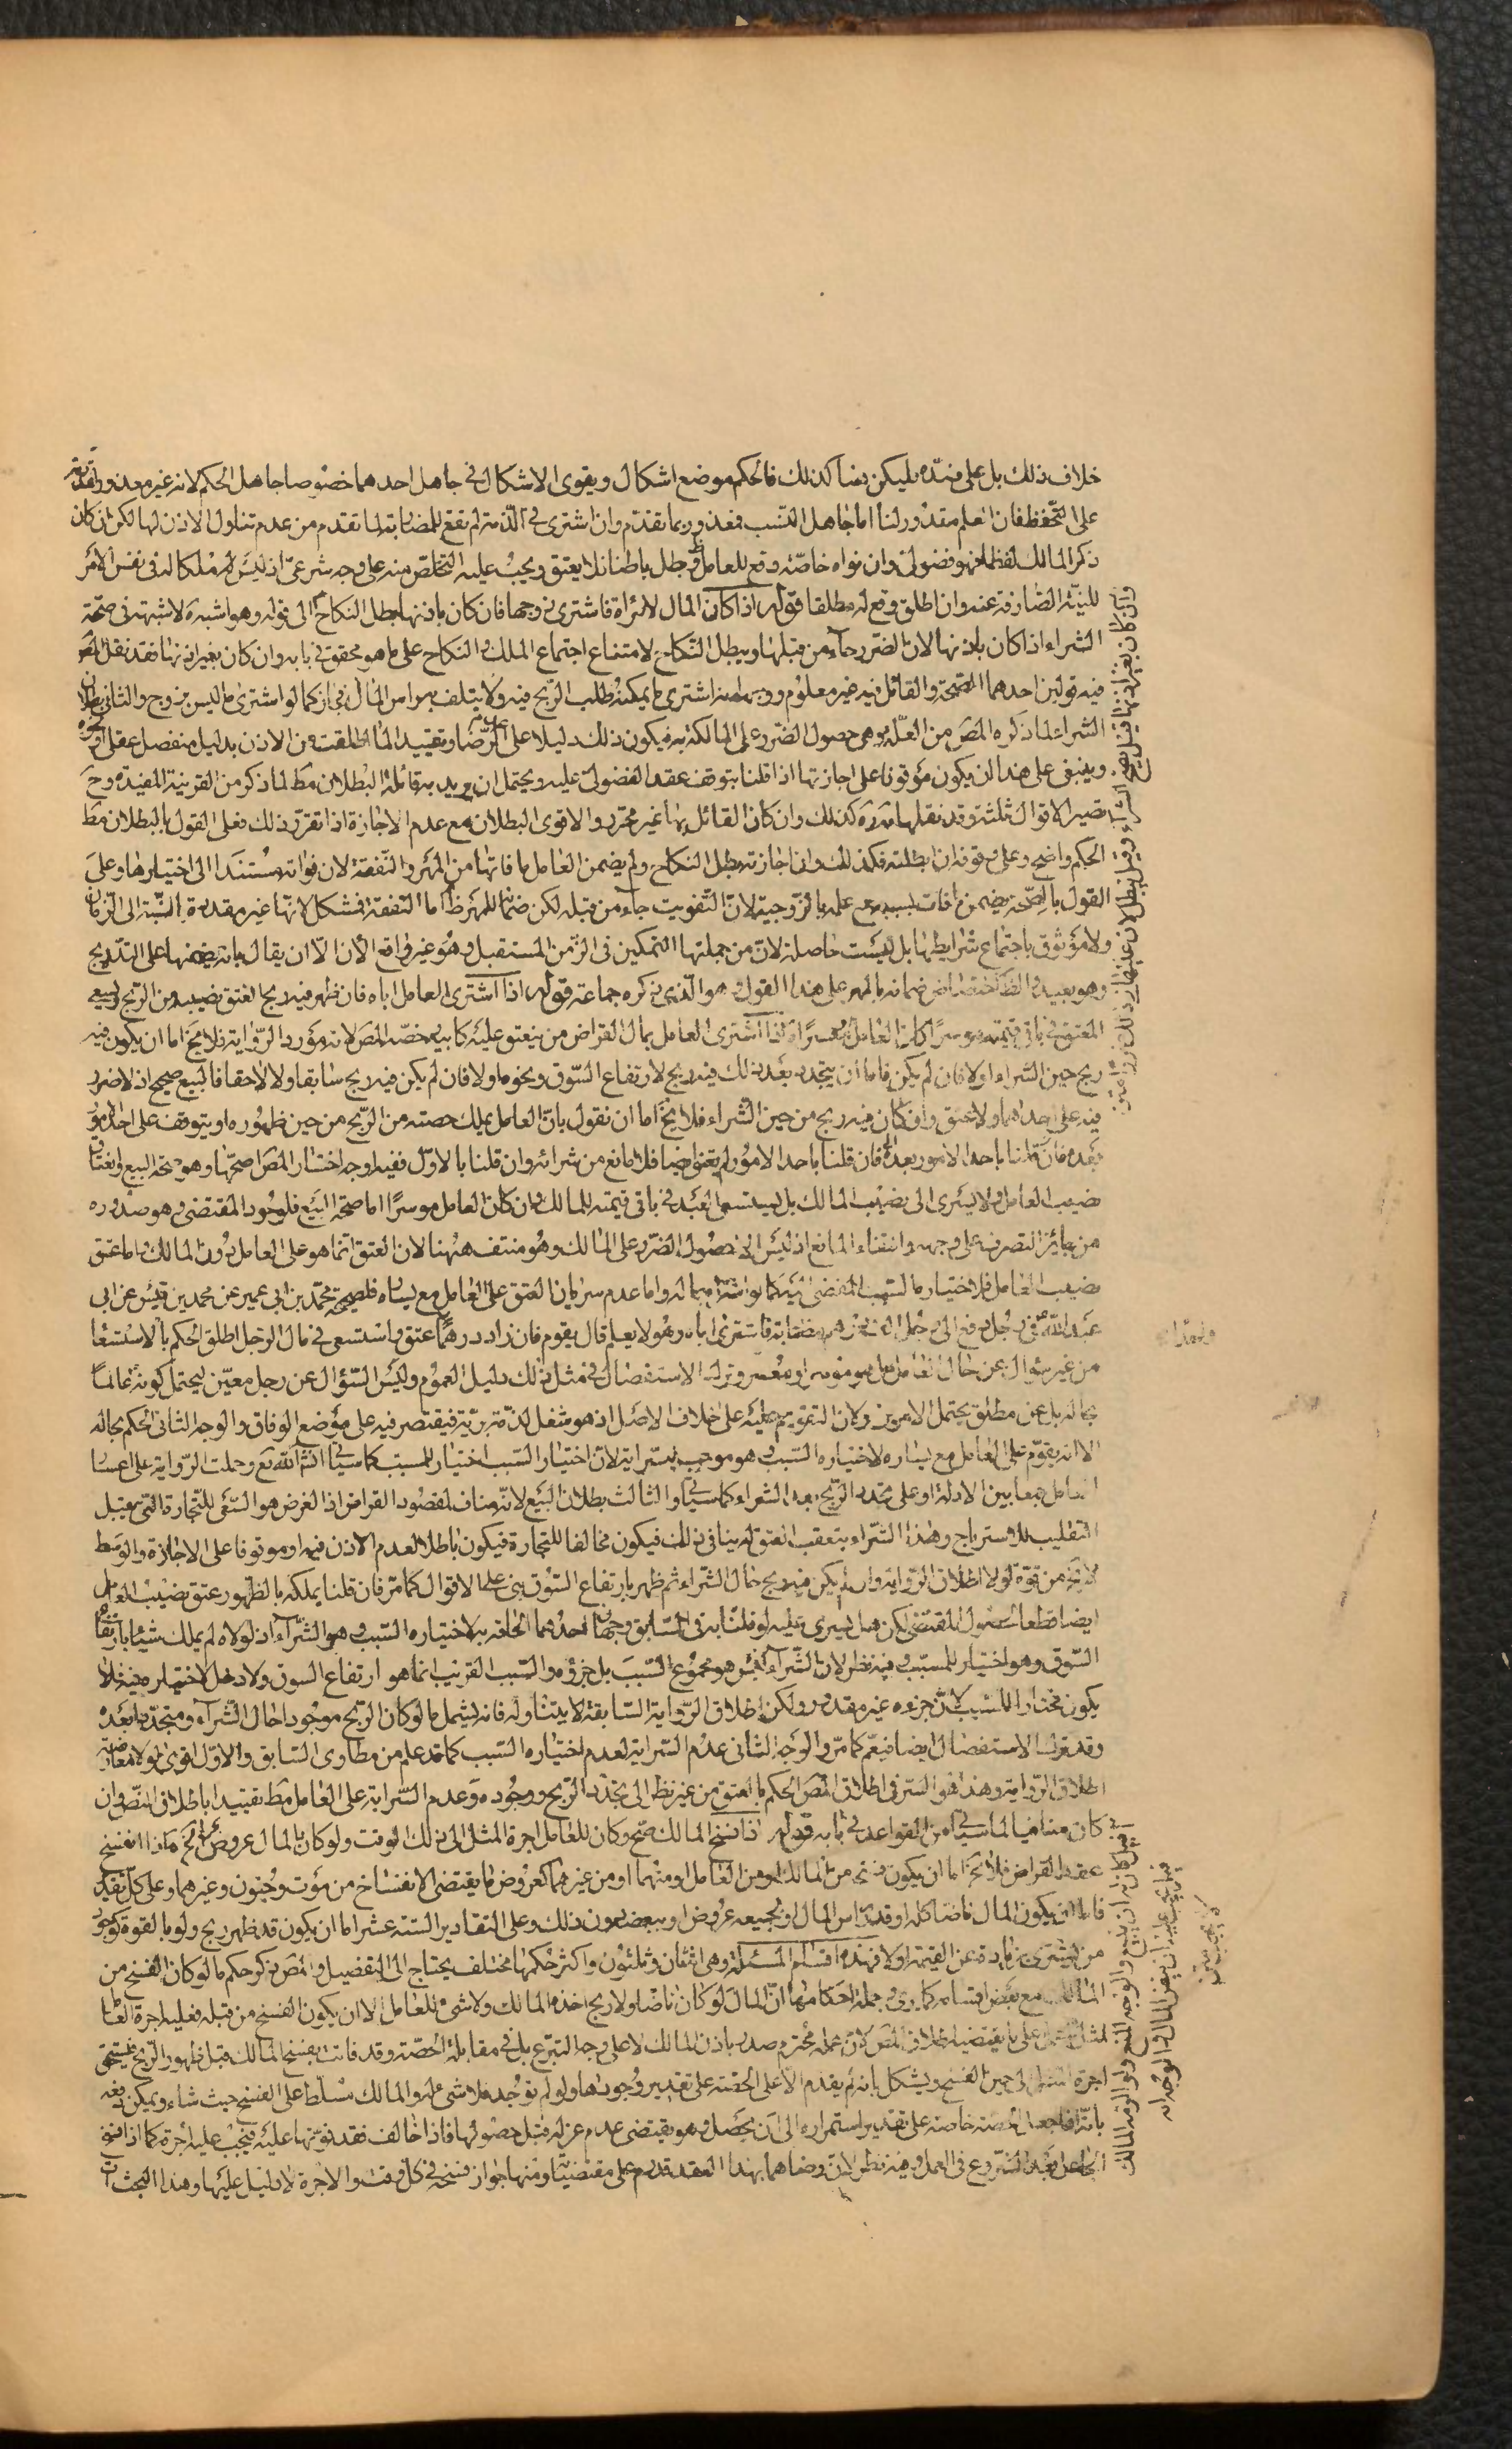 خلاف ذلك بل على ضده فليكن هنا كذلك فالحكم موضع اشكال ويقوى الاشكال في جاهل احدهما خصوصا جاهل الحكم لانه غير معذور
على التحفظ فان العلم مقدور لنا اما جاهل النسب فمعذور بما تقدم وان اشترى في الذمة لم تقع للمضاربة لما تقدم من عدم تناول الاذن لها لكن ان كان
ذكر المالك لفظا فهو فضولي وان نواه خاصة وقع للعامل وبطل باطنا فلا يعتق ويجب عليه التخلص منه على وجه شرعي اذ ليس ملكا له في نفس الامر
للنية الصارفة عنه وان اطلق وقع له مطلقا قوله اذا كان المال لامراة فاشترى زوجها فان كان باذنها بطل النكاح الى قوله وهو اشبه لا شبهة في صحة
الشراء اذا كان باذنها لان الضرر جاء من قبلها ويبطل النكاح لامتناع اجتماع الملك والنكاح على ما هو محقق في بابه وان كان بغير اذنها فقد نقل المص
فيه قولين احدهما الصحة والقائل به غير معلوم ووجهه انه اشترى ما يمكنه طلب الربح فيه ولا يتلف راس المال فجاز كما لو اشترى ما ليس بزوج والثاني بطلان
الشراء لما ذكره المص من العلة وهي حصول الضرر على المالكة به فيكون ذلك دليلا على عدم الرضا وتقييد المطلقة من الاذن بدليل منفصل عقلي
وينبغي على هذا ان يكون موقوفا على اجازتها اذا قلنا بتوقف عقد الفضولي عليه ويحتمل ان يريد به قائله البطلان مط لما ذكر من القرينة المفيدة وح
تصير الاقوال ثلثة وقد نقلها كذلك وان كان القائل بها غير محرر والاقوى البطلان مع عدم الاجازة اذا تقرر ذلك فعلى القول بالبطلان مط
الحكم واضح وعلى موقوفه ان ابطلته فكذلك وان اجازته بطل النكاح ولم يضمن العامل ما فاتها من المهر والنفقة لان فواته مستندا الى اختيارها وعلى
القول بالصحة يضمن ما فات بسببه مع علمه بالزوجية لان التفويت جاء من قبله لكن ضمان المهر ظ اما النفقة فمشكل لانها غير مقدرة بالنسبة الى الزمان
ولا موثوق باجتماع شرايطها بل ليست حاصلة لان من جملتها التمكين في الزمن المستقبل وهو غير واقع الان الا ان يقال بانه يضمنها على التدريج
وهو بعيد والظ اختصاص ضمانه بالمهر على هذا القول وهو الذي ذكره جماعة قوله اذا اشترى العامل اباه فان ظهر فيه ربح انعتق نصيبه من الربح ويسعى
المعتق في باقي قيمته موسرا كان العامل او معسرا اذا اشترى العامل بمال القراض من ينعتق عليه كابيه خصه المص لانه مورد الرواية فلا يخ اما ان يكون فيه
ربح حين الشراء او لا فان لم يكن فاما ان يتجدد بعد ذلك فيه ربح لارتفاع السوق ونحوه او لا فان لم يكن فيه ربح سابقا ولا لاحقا فالبيع صحيح اذ لا ضرر
فيه على احدهما ولا عتق وان كان فيه ربح من حين الشراء فلا يخ اما ان نقول بان العامل يملك حصته من الربح من حين ظهوره او يتوقف على احد امور
بعده فان قلنا باحد الامور بعده فان قلنا باحد الامور لم يعتق ايضا فلا مانع من شرائه وان قلنا بالاول ففيه اوجه اختار المص اصحها وهو صحة البيع وانعتاق
نصيب العامل ولا يسرى الى نصيب المالك بل يستسعى العبد في باقي قيمته للمالك وان كان العامل موسرا اما صحة البيع فلوجود المقتضي وهو صدوره
من جائز التصرف على وجهه وانتفاء المانع اذ ليس الا حصول الضرر على المالك وهو منتف هنا لان العتق انما هو على العامل دون المالك واما عتق
نصيب العامل فلاختياره السبب المفضي اليه كما لو اشتراه بماله واما عدم سريان العتق على العامل مع يساره فلصحيحة محمد بن ابي عمير عن محمد بن قيس عن ابي
عبد الله ع في رجل دفع الى رجل الف درهم مضاربة فاشترى اباه وهو لا يعلم قال يقوم فان زاد درهما عتق واستسعى في مال الرجل اطلق الحكم بالاستسعا
من غير سؤال عن حال العامل هل هو موسر او معسر وترك الاستفصال في مثل ذلك دليل العموم وليس السؤال عن رجل معين ليحتمل كونه عالما
بحاله بل عن مطلق يحتمل الامرين وكان التقويم عليه على خلاف الاصل اذ هو شغل لذمة برية فيقتصر فيه على موضع الوفاق والوجه الثاني الحكم بحاله
الا انه يقوم على العامل مع يساره لاختياره السبب وهو موجب للسراية لان اختيار السبب اختيار للمسبب كما سياتي انشاء الله تع وحملت الرواية على اعسار
العامل جمعا بين الادلة او على تجدد الربح بعد الشراء كما سياتي والثالث بطلان البيع لانه مناف لمقصود القراض اذ الغرض هو السعي للتجارة التي تقبل
التقليب للاسترباح وهذا الشراء يتعقب العتق له ينافي ذلك فيكون مخالفا للتجارة فيكون باطلا لعدم الاذن فيه او موقوفا على الاجازة والوسط
لا يخ من قوة لولا اطلاق الرواية وان لم يكن فيه ربح حال الشراء ثم ظهر بارتفاع السوق بني على الاقوال كما مر فان قلنا يملكه بالظهور عتق نصيب العامل
ايضا قطعا لحصول المقتضي لكن هل يسري عليه لو قلنا به في السابق وجهان احدهما الحاقه به لاختياره السبب وهو الشراء اذ لولاه لم يملك شيئا بارتفاع
السوق وهو اختيار للمسبب وفيه نظر لان الشراء ليس هو مجموع السبب بل جزؤه والسبب القريب انما هو ارتفاع السوق ولا دخل لاختياره فيه فلا
يكون مختارا للسبب لان جزءه غير مقدور ولكن اطلاق الرواية السابقة لا يتناوله فانه يشمل ما لو كان الربح موجودا حال الشراء ومتجددا بعده
وقد ترك الاستفصال ايضا فيعم كما مر والوجه الثاني عدم السراية لعدم اختياره السبب كما قد علم من مطاوي السابق والاول اقوى لولا معارضة
اطلاق الرواية وهذا هو السر في اطلاق المص الحكم بالعتق من غير نظر الى تجدد الربح ووجوده وعدم السراية على العامل مط تقييدا باطلاق النص وان
كان منافيا لما سياتي من القواعد في بابه قوله اذا فسخ المالك صح وكان للعامل اجرة المثل الى ذلك الوقت ولو كان بالمال عروض الخ اذا انفسخ
عقد القراض فلا يخ اما ان يكون فسخه من المالك او من العامل او منهما او من غيرهما كعروض ما يقتضي الانفساخ من موت وجنون وغيرهما وعلى كل تقدير
فاما ان يكون المال ناضا كله او قدر راس المال او بجميعه عروض او ببعضه دون ذلك وعلى التقادير الستة عشر اما ان يكون قد ظهر ربح ولو بالقوة كوجود
من يشتري بزيادة عن القيمة او لا فهذه اقسام المسئلة وهي اثنان وثلثون واكثر حكمها مختلف يحتاج الى التفصيل والمص ذكر حكم ما لو كان الفسخ من
المالك مع بعض اقسامه كما ترى وجملة احكامها ان المال لو كان ناضا ولا ربح اخذه المالك ولا شيء للعامل الا ان يكون الفسخ من قبله فعليه اجرة
المثل على ما يقتضيه اطلاق المص لان عمله محترم صدر باذن المالك لا على وجه التبرع بل في مقابلة الحصة وقد فاتت بفسخ المالك قبل ظهور الربح فيستحق
اجرة المثل الى حين الفسخ ويشكل بانه لم يقدم الا على الحصة على تقدير وجودها ولو لم توجد فلا شيء له والمالك مسلط على الفسخ حيث شاء ويمكن دفعه
بانه انما جعل الحصة خاصة على تقدير استمراره الى ان يحصل وهو يقتضي عدم عزله قبل حصولها فاذا خالف فقد فوتها عليه فيجب عليه اجرة كما اذا فسخ
الجاعل بعد الشروع في العمل وفيه نظر لان رضاهما بهذا العقد قدوم على مقتضياته ومنها جواز فسخه في كل وقت والاجرة لا دليل عليها وهذا البحث ات
وان كان بغير اذنها قيل يصح الشراء وقيل يبطل لان عليها في ذلك ضررا
قيل كان له ان يبيع والوجه المنع ولو الزمه المالك
قيل يجب عليه ان ينض المال والوجه انه
لا يجب